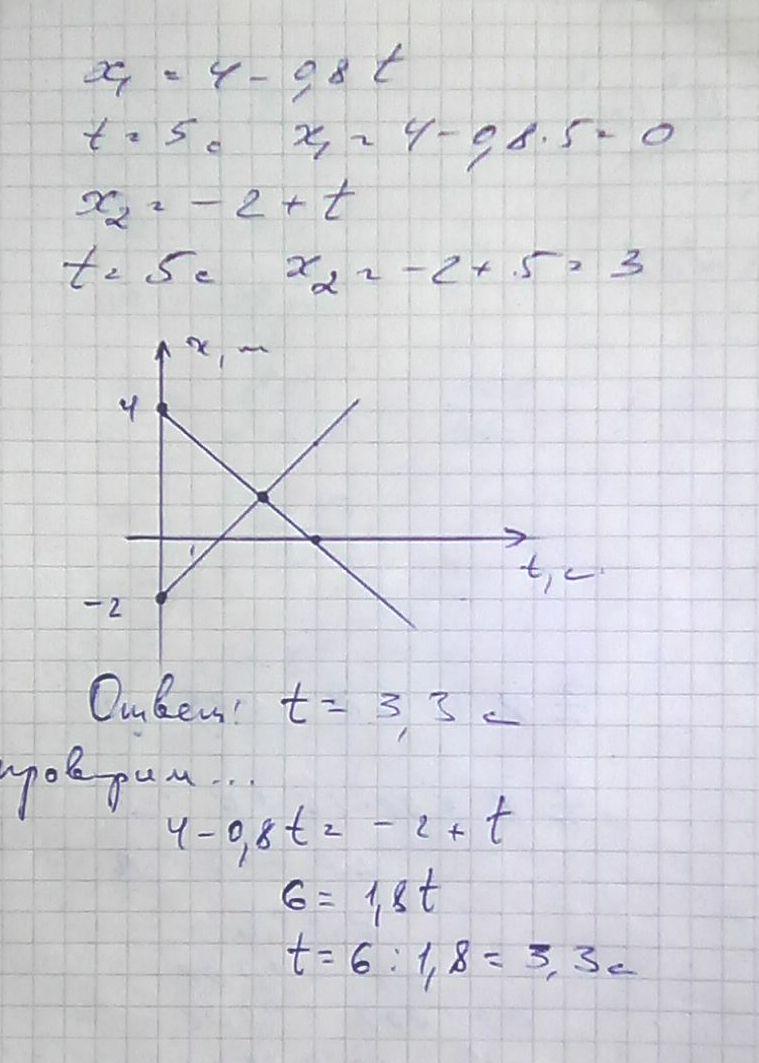 x₁ = 4 - 0,8 t
t = 5 с x₁ = 4 - 0,8 · 5 = 0
x₂ = -2 + t
t = 5 с x₂ = -2 + 5 = 3
x, м
4
1
t, с
-2
Ответ: t = 3,3 с
проверим...
4 - 0,8t = -2 + t
6 = 1,8t
t = 6 : 1,8 = 3,3 с